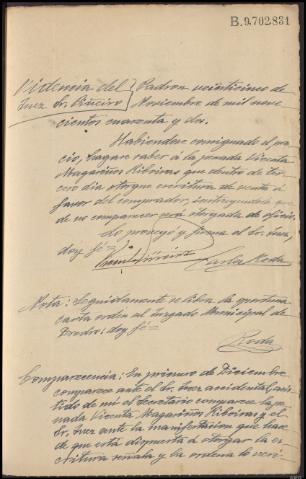 B.9.702831
Providencia del } Padron veinticinco de
Juez Sr. Piñeiro } Noviembre de mil nove-
cientos cuarenta y dos.
Habiendose consignado el pre-
cio, hagase saber á la penada Vicenta
Magariños Ribeiras que dentro de ter-
cero dia otorgue escritura de venta á
favor del comprador,
de no comparecer será otorgada de oficio.
Lo proveyó y firma el Sr. Juez,
doy fé=
Nota: Seguidamente se libra
carta orden al Juzgado Municipal de
Dodro; doy fé=
Roda
Comparecencia: En primero de Diciembre
comparece ante el Sr. Juez accidental, asis-
tido de mi el Secretario comparece la pe-
nada Vicenta Magariños Ribeiras y el
Sr. Juez ante la manifestacion que hace
de que está dispuesta á otorgar la es-
critura señala y la ordena lo veri-